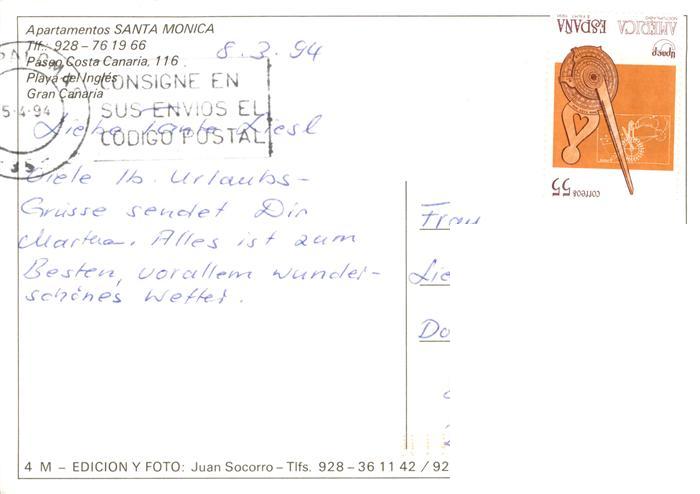 Apartamentos SANTA MONICA
Tlf.: 928 - 76 19 66
Paseo Costa Canaria, 116
Playa del Inglés
Gran Canaria
8.3.94
5-4-94
CONSIGNE EN
SUS ENVIOS EL
CODIGO POSTAL
Liebe Tante Liesl
Viele lb. Urlaubs-
Grüsse sendet Dir
Martha. Alles ist zum
Besten, vorallem wunder-
schönes Wetter.
ESPAÑA
AMERICA
upaep
correos
55
Frau
Lie
Do
4 M - EDICION Y FOTO: Juan Socorro - Tlfs. 928 - 36 11 42 / 92